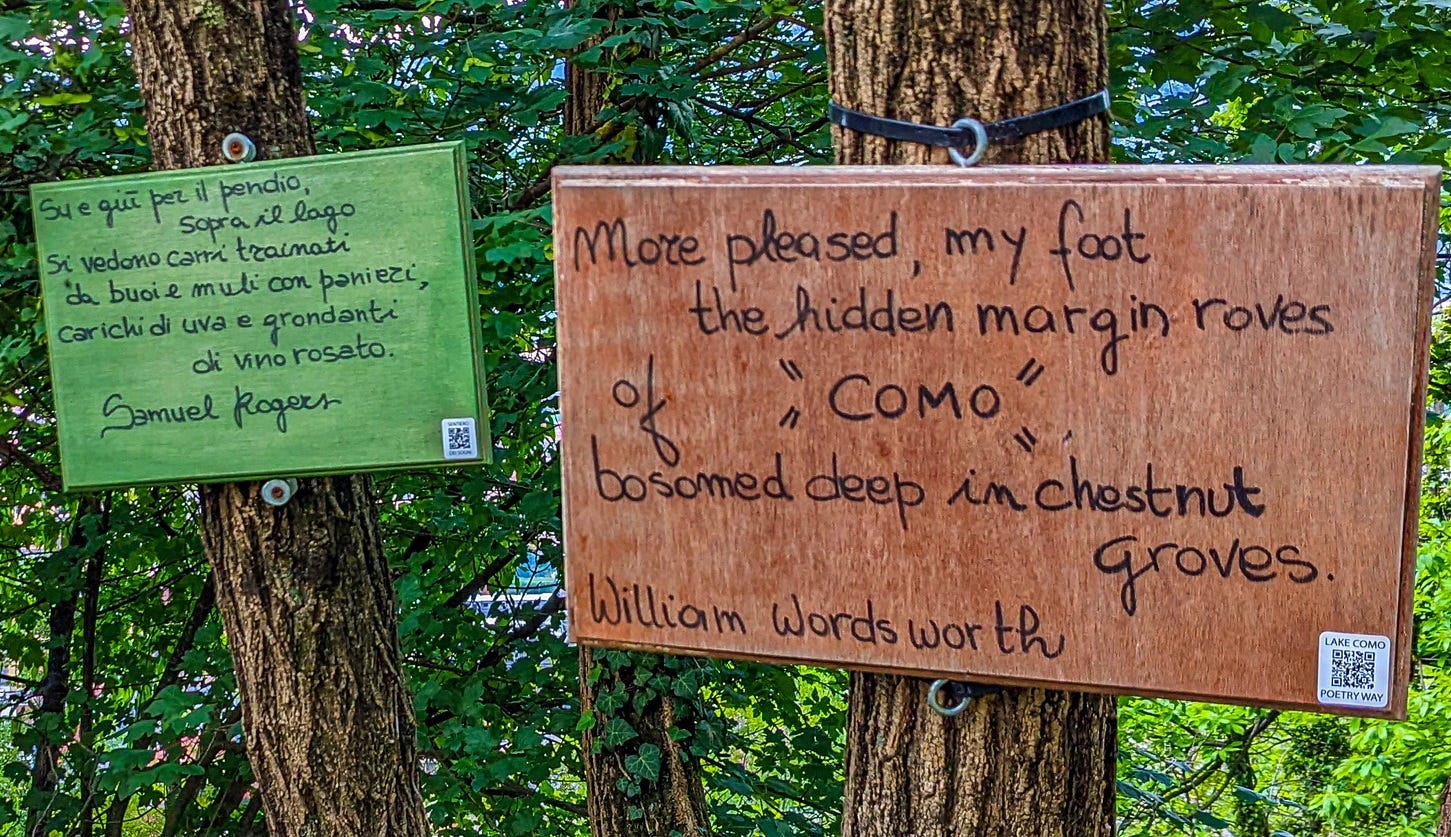 Su e giù per il pendio,
sopra il lago
si vedono carri trainati
da buoi e muli con panieri,
carichi di uva e grondanti
di vino rosato.
Samuel Rogers
SENTIERO
DEI SOGNI
More pleased, my foot
the hidden margin roves
of "COMO"
bosomed deep in chestnut
groves.
William Wordsworth
LAKE COMO
POETRY WAY